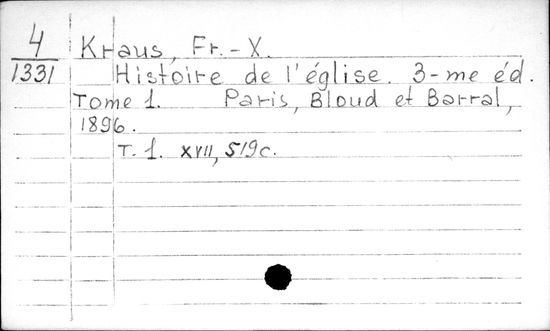 4 Kraus, Fr.-X.
1331 Histoire de l'église. 3-me éd.
Tome 1. Paris, Bloud et Barral,
1896.
T. 1. XVII, 519c.